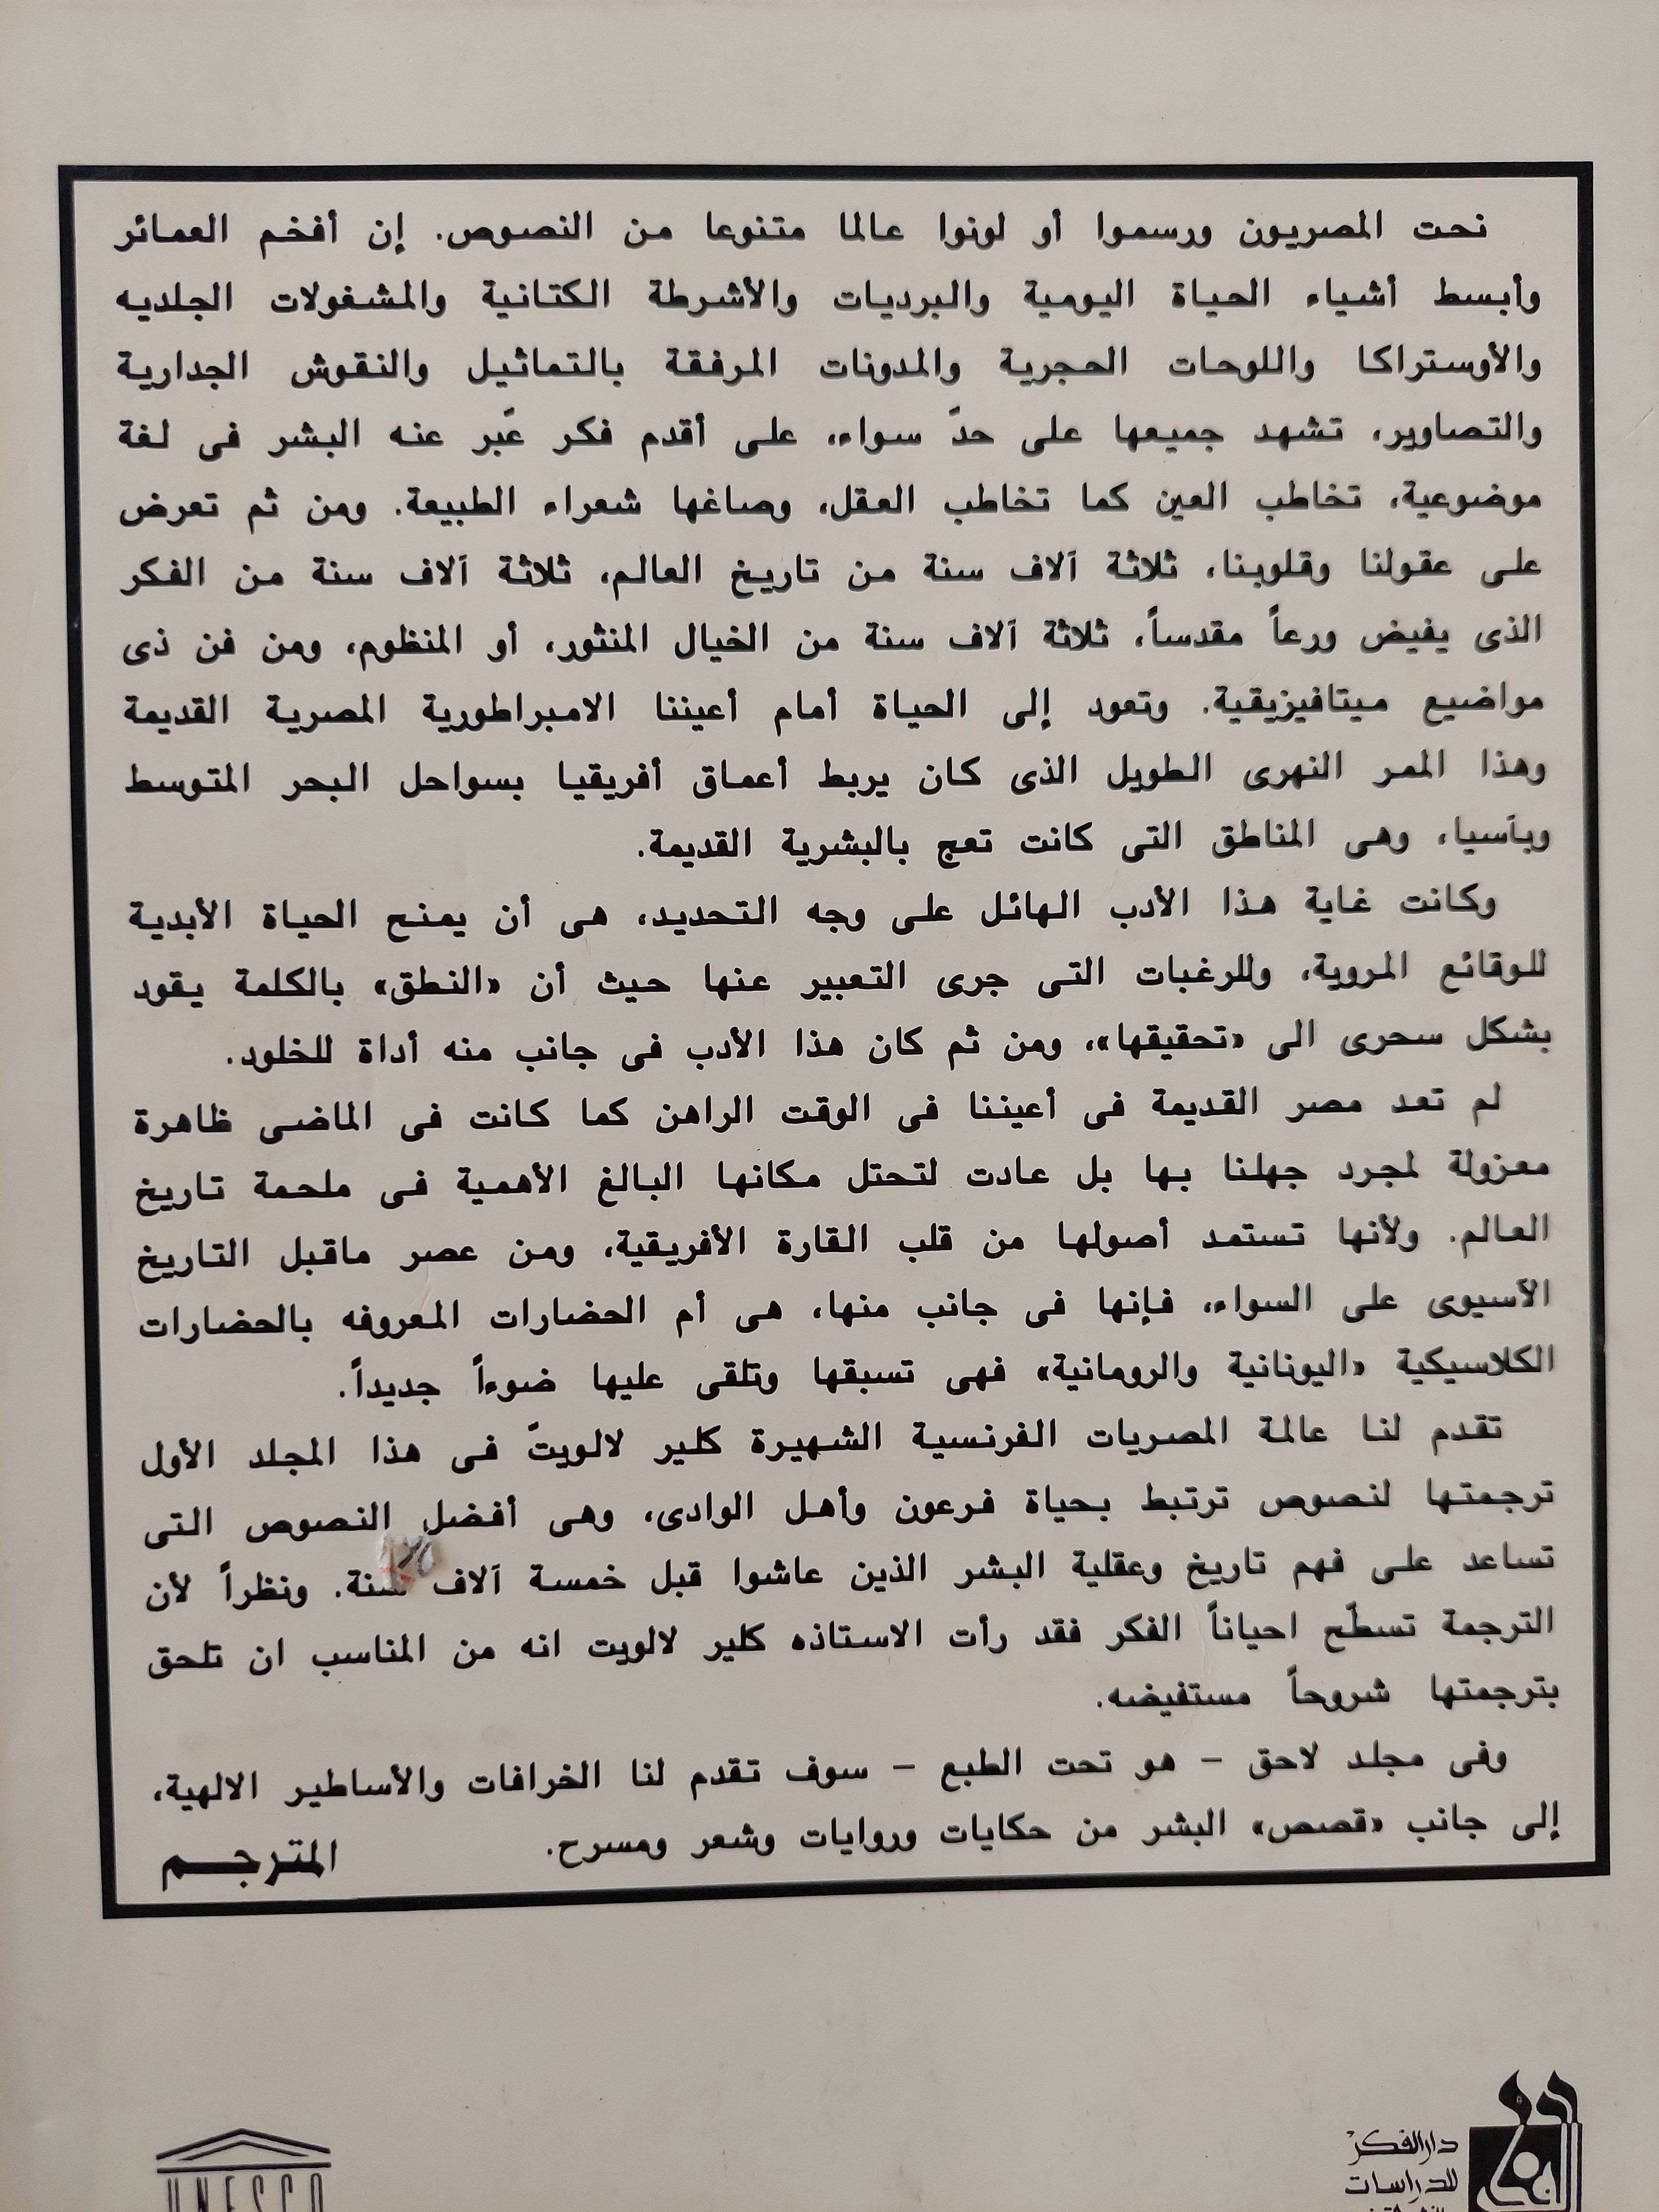 نحت المصريون ورسموا أو لونوا عالما متنوعا من النصوص. إن أفخم العمائر
وأبسط أشياء الحياة اليومية والبرديات والأشرطة الكتانية والمشغولات الجلديه
والأوستراكا واللوحات الحجرية والمدونات المرفقة بالتماثيل والنقوش الجدارية
والتصاوير، تشهد جميعها على حدّ سواء، على أقدم فكر عَبر عنه البشر فى لغة
موضوعية، تخاطب العين كما تخاطب العقل، وصاغها شعراء الطبيعة. ومن ثم تعرض
على عقولنا وقلوبنا، ثلاثة آلاف سنة من تاريخ العالم، ثلاثة آلاف سنة من الفكر
الذى يفيض ورعاً مقدساً، ثلاثة آلاف سنة من الخيال المنثور، أو المنظوم، ومن فن ذى
مواضيع ميتافيزيقية. وتعود إلى الحياة أمام أعيننا الامبراطورية المصرية القديمة
وهذا الممر النهرى الطويل الذى كان يربط أعماق أفريقيا بسواحل البحر المتوسط
وبآسيا، وهى المناطق التى كانت تعج بالبشرية القديمة.
وكانت غاية هذا الأدب الهائل على وجه التحديد، هى أن يمنح الحياة الأبدية
للوقائع المروية، وللرغبات التى جرى التعبير عنها حيث أن «النطق» بالكلمة يقود
بشكل سحرى الى «تحقيقها»، ومن ثم كان هذا الأدب فى جانب منه أداة للخلود.
لم تعد مصر القديمة فى أعيننا فى الوقت الراهن كما كانت فى الماضى ظاهرة
معزولة لمجرد جهلنا بها بل عادت لتحتل مكانها البالغ الأهمية فى ملحمة تاريخ
العالم. ولأنها تستمد أصولها من قلب القارة الأفريقية، ومن عصر ماقبل التاريخ
الآسيوى على السواء، فإنها فى جانب منها، هى أم الحضارات المعروفه بالحضارات
الكلاسيكية «اليونانية والرومانية» فهى تسبقها وتلقى عليها ضوءاً جديداً.
تقدم لنا عالمة المصريات الفرنسية الشهيرة كلير لالويتّ فى هذا المجلد الأول
ترجمتها لنصوص ترتبط بحياة فرعون وأهل الوادى، وهى أفضل النصوص التى
تساعد على فهم تاريخ وعقلية البشر الذين عاشوا قبل خمسة آلاف سنة. ونظراً لأن
الترجمة تسطّح احياناً الفكر فقد رأت الاستاذه كلير لالويت انه من المناسب ان تلحق
بترجمتها شروحاً مستفيضه.
وفى مجلد لاحق – هو تحت الطبع – سوف تقدم لنا الخرافات والأساطير الالهية،
إلى جانب «قصص» البشر من حكايات وروايات وشعر ومسرح.
المترجم
دار الفكر
للدراسات
UNESCO